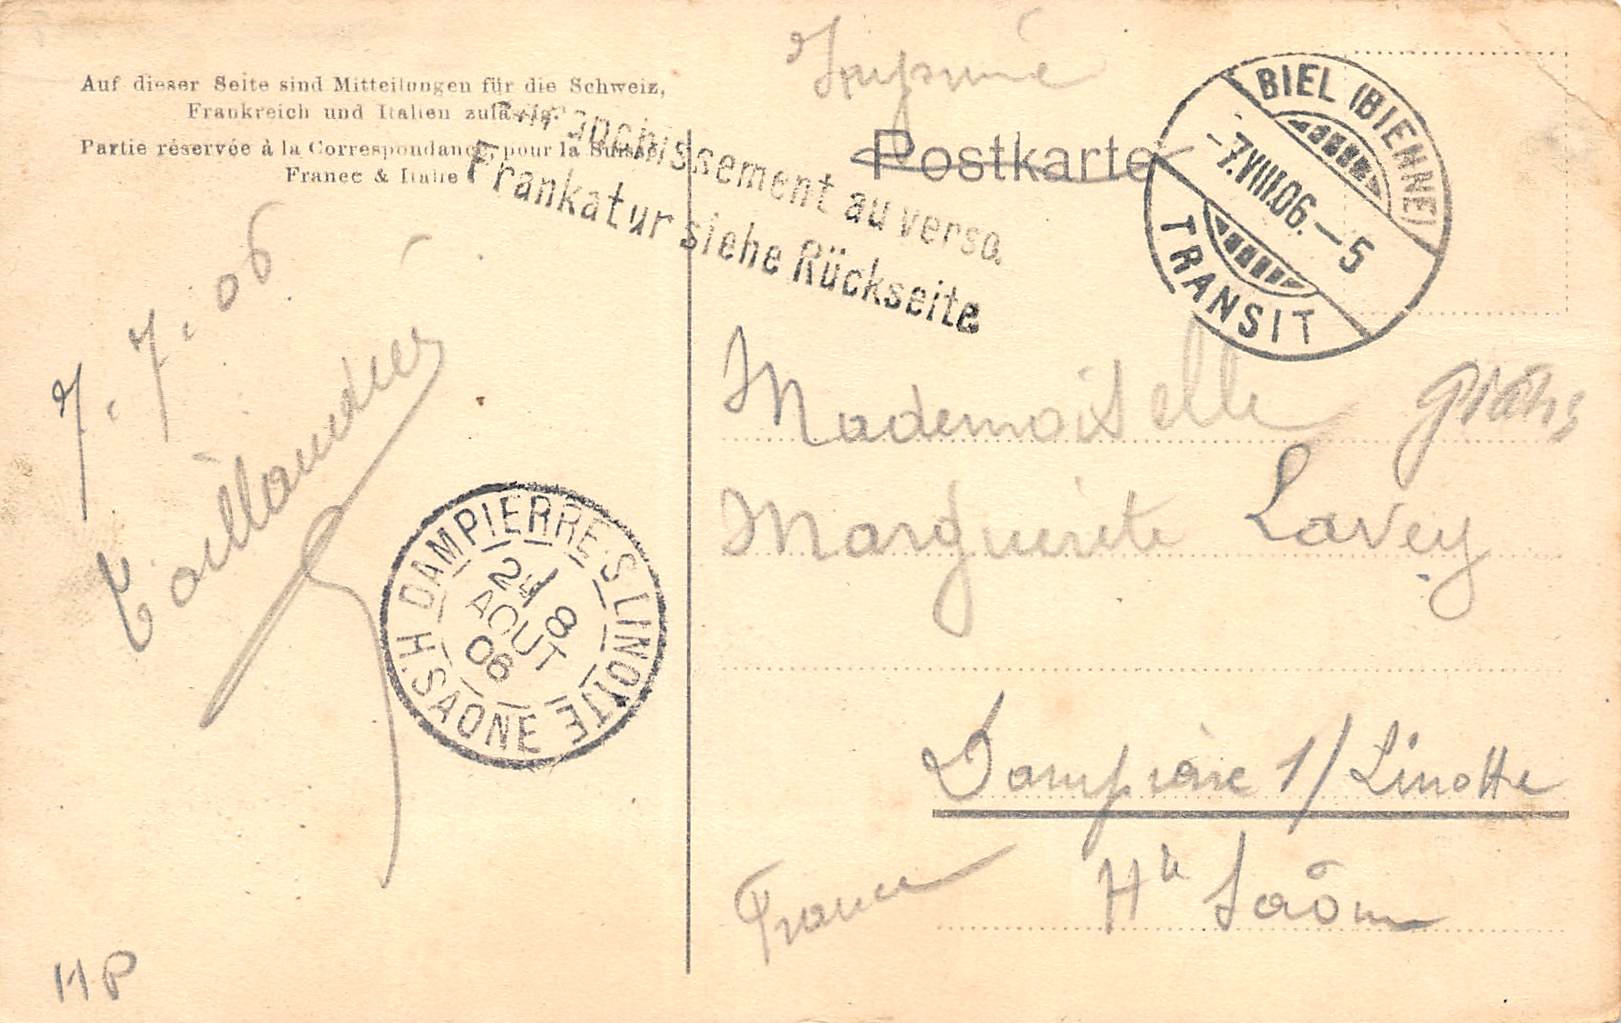 Auf dieser Seite sind Mitteilungen für die Schweiz,
Frankreich und Italien zulässig.
Partie réservée à la Correspondance pour la Suisse,
France & Italie
Imprimé
Postkarte
Affranchissement au verso.
Frankatur siehe Rückseite
BIEL (BIENNE)
-7.VIII.06.-5
TRANSIT
7.7.06
Taillandier
Mademoiselle
Marguerite Lavey
Dampierre s/ Linotte
Hte Saône
France
DAMPIERRE-S-LINOTTE
8
AOUT
06
H. SAONE
HP